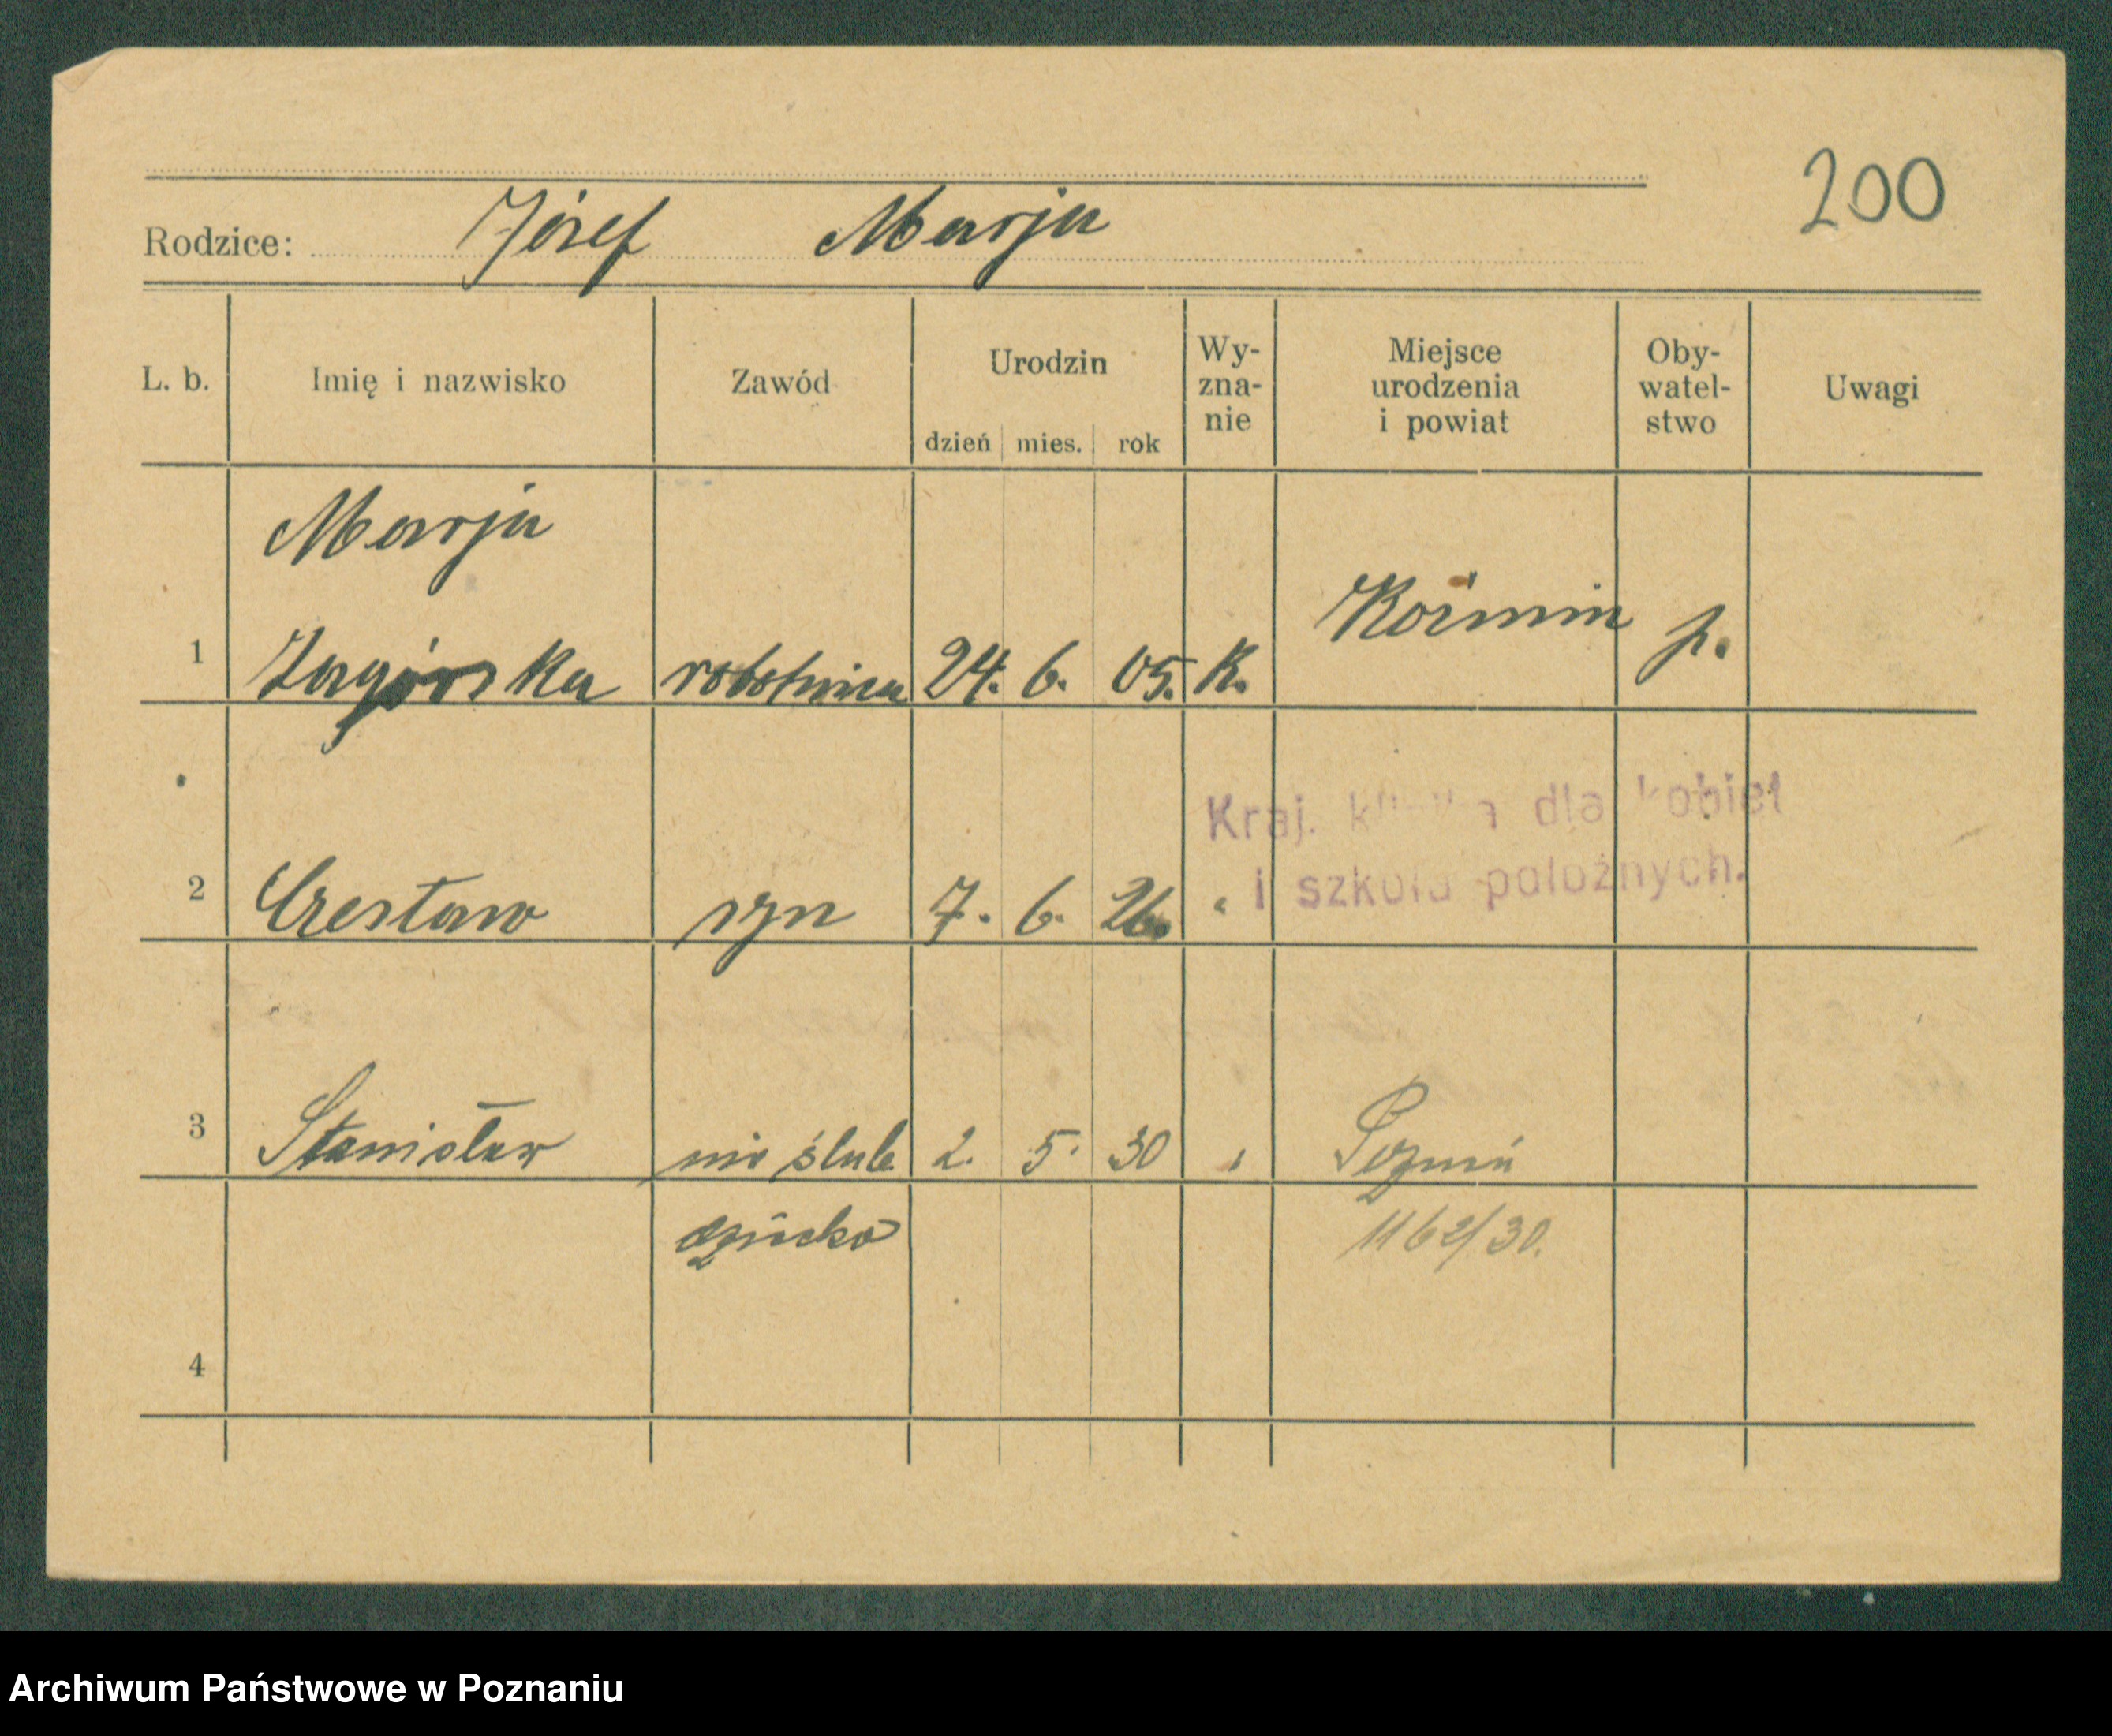 200
Rodzice: Józef Marja
L. b. Imię i nazwisko Zawód Urodzin dzień mies. rok Wy-zna-nie Miejsce urodzenia i powiat Oby-watel-stwo Uwagi
Marja
1 Zagórska robotnica 24. 6. 05. K. Koźmin p.
Kraj. klinika dla kobiet
i szkoła położnych.
2 Czesław syn 7. 6. 26. "
3 Stanisław nieślub. 2. 5. 30 " Poznań
dziecko 1162/30.
4
Archiwum Państwowe w Poznaniu